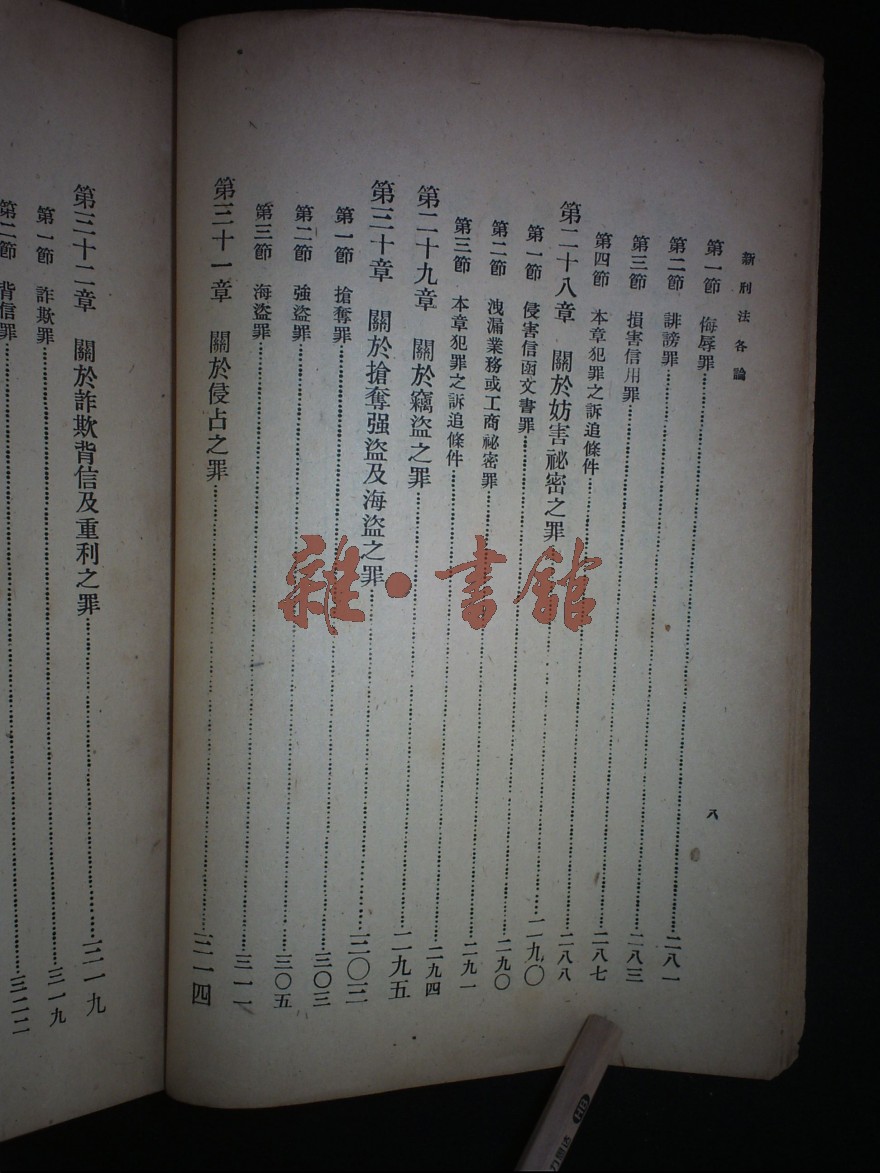 新刑法各論 八
第一節 侮辱罪……二八一
第二節 誹謗罪……二八三
第三節 損害信用罪……二八七
第四節 本章犯罪之訴追條件……二八八
第二十八章 關於妨害祕密之罪……二九〇
第一節 侵害信函文書罪……二九〇
第二節 洩漏業務或工商祕密罪……二九一
第三節 本章犯罪之訴追條件……二九四
第二十九章 關於竊盜之罪……二九五
第三十章 關於搶奪强盜及海盜之罪……三〇二
第一節 搶奪罪……三〇三
第二節 强盜罪……三〇五
第三節 海盜罪……三一一
第三十一章 關於侵占之罪……三一四
第三十二章 關於詐欺背信及重利之罪……三一九
第一節 詐欺罪……三一九
第二節 背信罪……三二二
雜·書館
HB